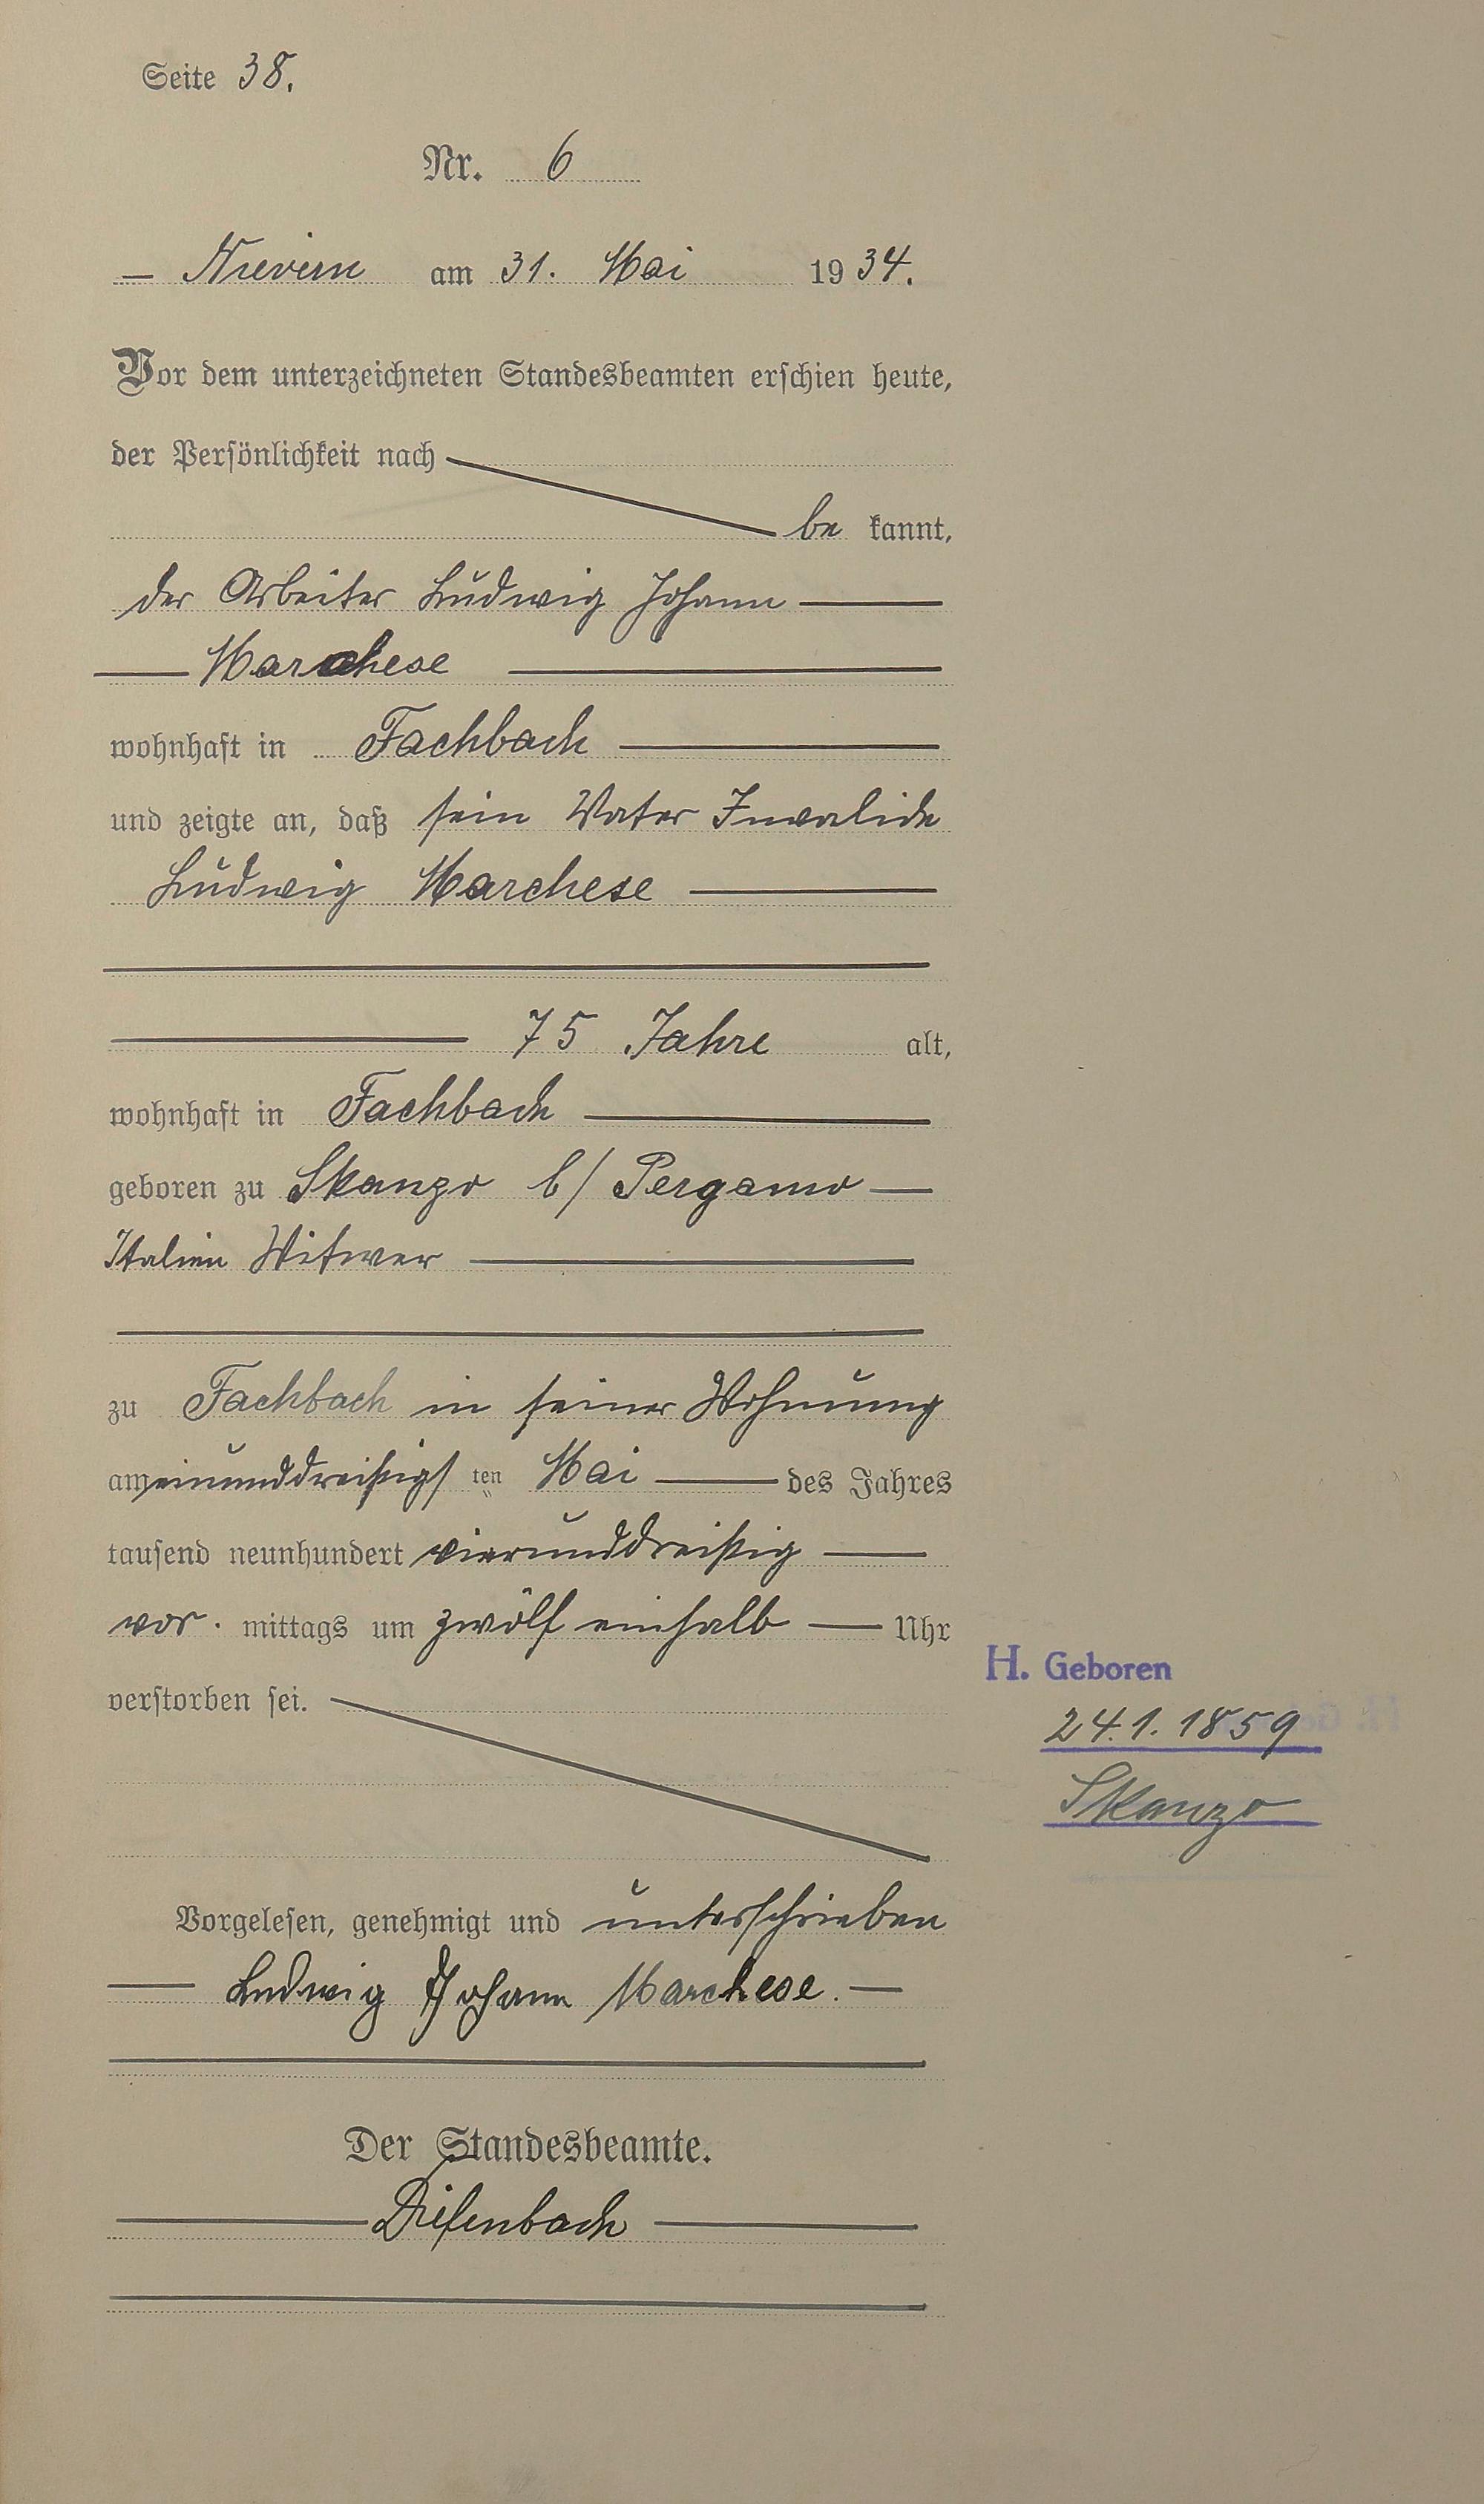 Seite 38.
Nr. 6
— Nievern am 31. Mai 1934.
Vor dem unterzeichneten Standesbeamten erschien heute,
der Persönlichkeit nach
be kannt,
der Arbeiter Ludwig Johann —
— Marchese —
wohnhaft in Fachbach —
und zeigte an, daß sein Vater Invalide
Ludwig Marchese —
75 Jahre alt,
wohnhaft in Fachbach —
geboren zu Skanzo b/ Pergamo —
Italien Witwer —
zu Fachbach in seiner Wohnung
am einunddreißigsten Mai — des Jahres
tausend neunhundert vierunddreißig —
vor. mittags um zwölf einhalb — Uhr
verstorben sei.
H. Geboren
24.1.1859
Skanzo
Vorgelesen, genehmigt und unterschrieben
— Ludwig Johann Marchese. —
Der Standesbeamte.
— Diefenbach —